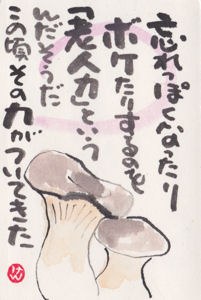 忘れっぽくなったり
ボケたりするのを
「老人力」という
んだそうだ
この頃その力がついてきた
けん